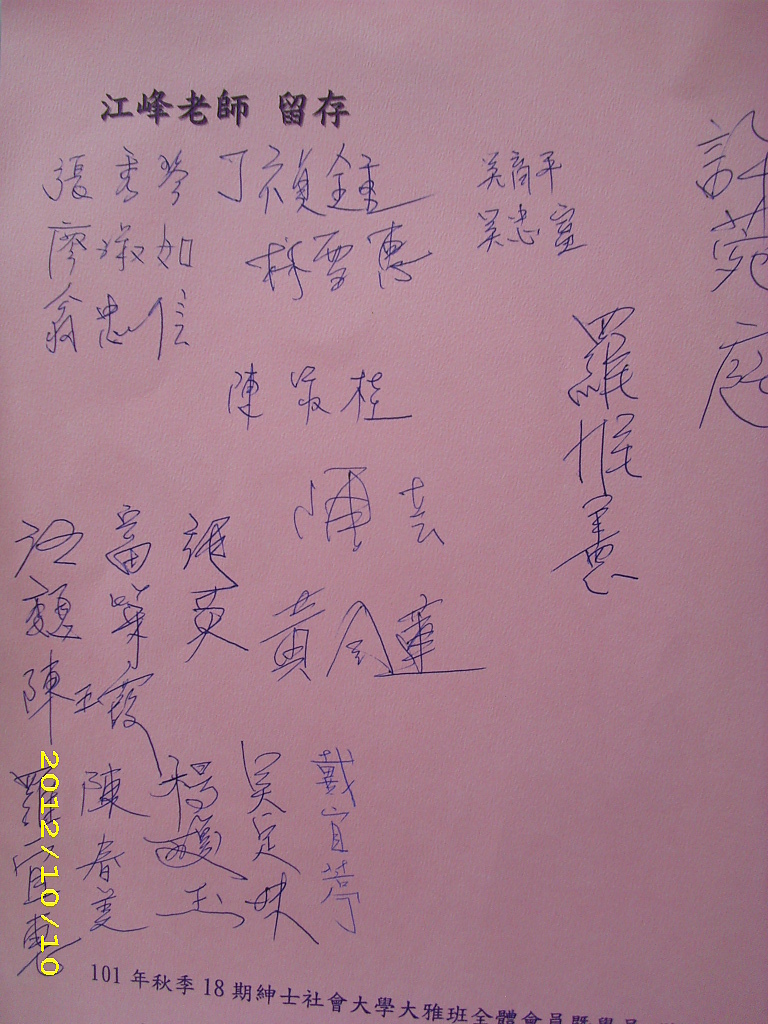 江峰老師 留存
張秀琴 丁禎鍾 吳商平
廖淑如 林雪惠 吳忠寅
翁忠信
許苑庭
羅惟憲
陳 桂
陳芸
張英
黃金蓮
陳玉霞
羅宜惠
陳春美
楊 玉
吳定妹
戴宜葶
2012/10/10
101 年秋季 18 期紳士社會大學大雅班全體會員暨學員